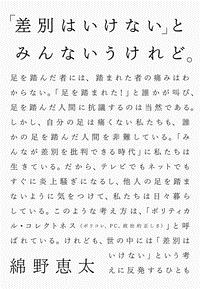 「差別はいけない」と
みんないうけれど。
足を踏んだ者には、踏まれた者の痛みはわ
からない。「足を踏まれた!」と誰かが叫び、
足を踏んだ人間に抗議するのは当然である。
しかし、自分の足は痛くない私たちも、誰
かの足を踏んだ人間を非難している。「みん
なが差別を批判できる時代」に私たちは
生きている。だから、テレビでもネットでも
すぐに炎上騒ぎになるし、他人の足を踏ま
ないように気をつけて、私たちは日々暮ら
している。このような考え方は、「ポリティカ
ル・コレクトネス(ポリコレ、PC、政治的正しさ)」と
呼ばれている。けれども、世の中には「差別は
いけない」という考
えに反発するひとも
綿野恵太